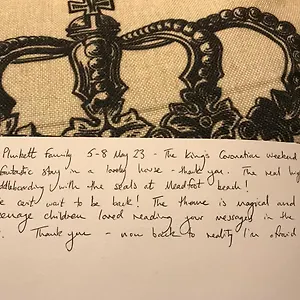 Plunkett Family 5-8 May 23 - The King's Coronation weekend
fantastic stay in a lovely house - thank you. The real hig
ddleboarding with the seals at Meadfoot beach!
e cant wait to be back! The theme is magical and
eenage children loved reading your messages in the
. Thank you - now back to reality I'm afraid